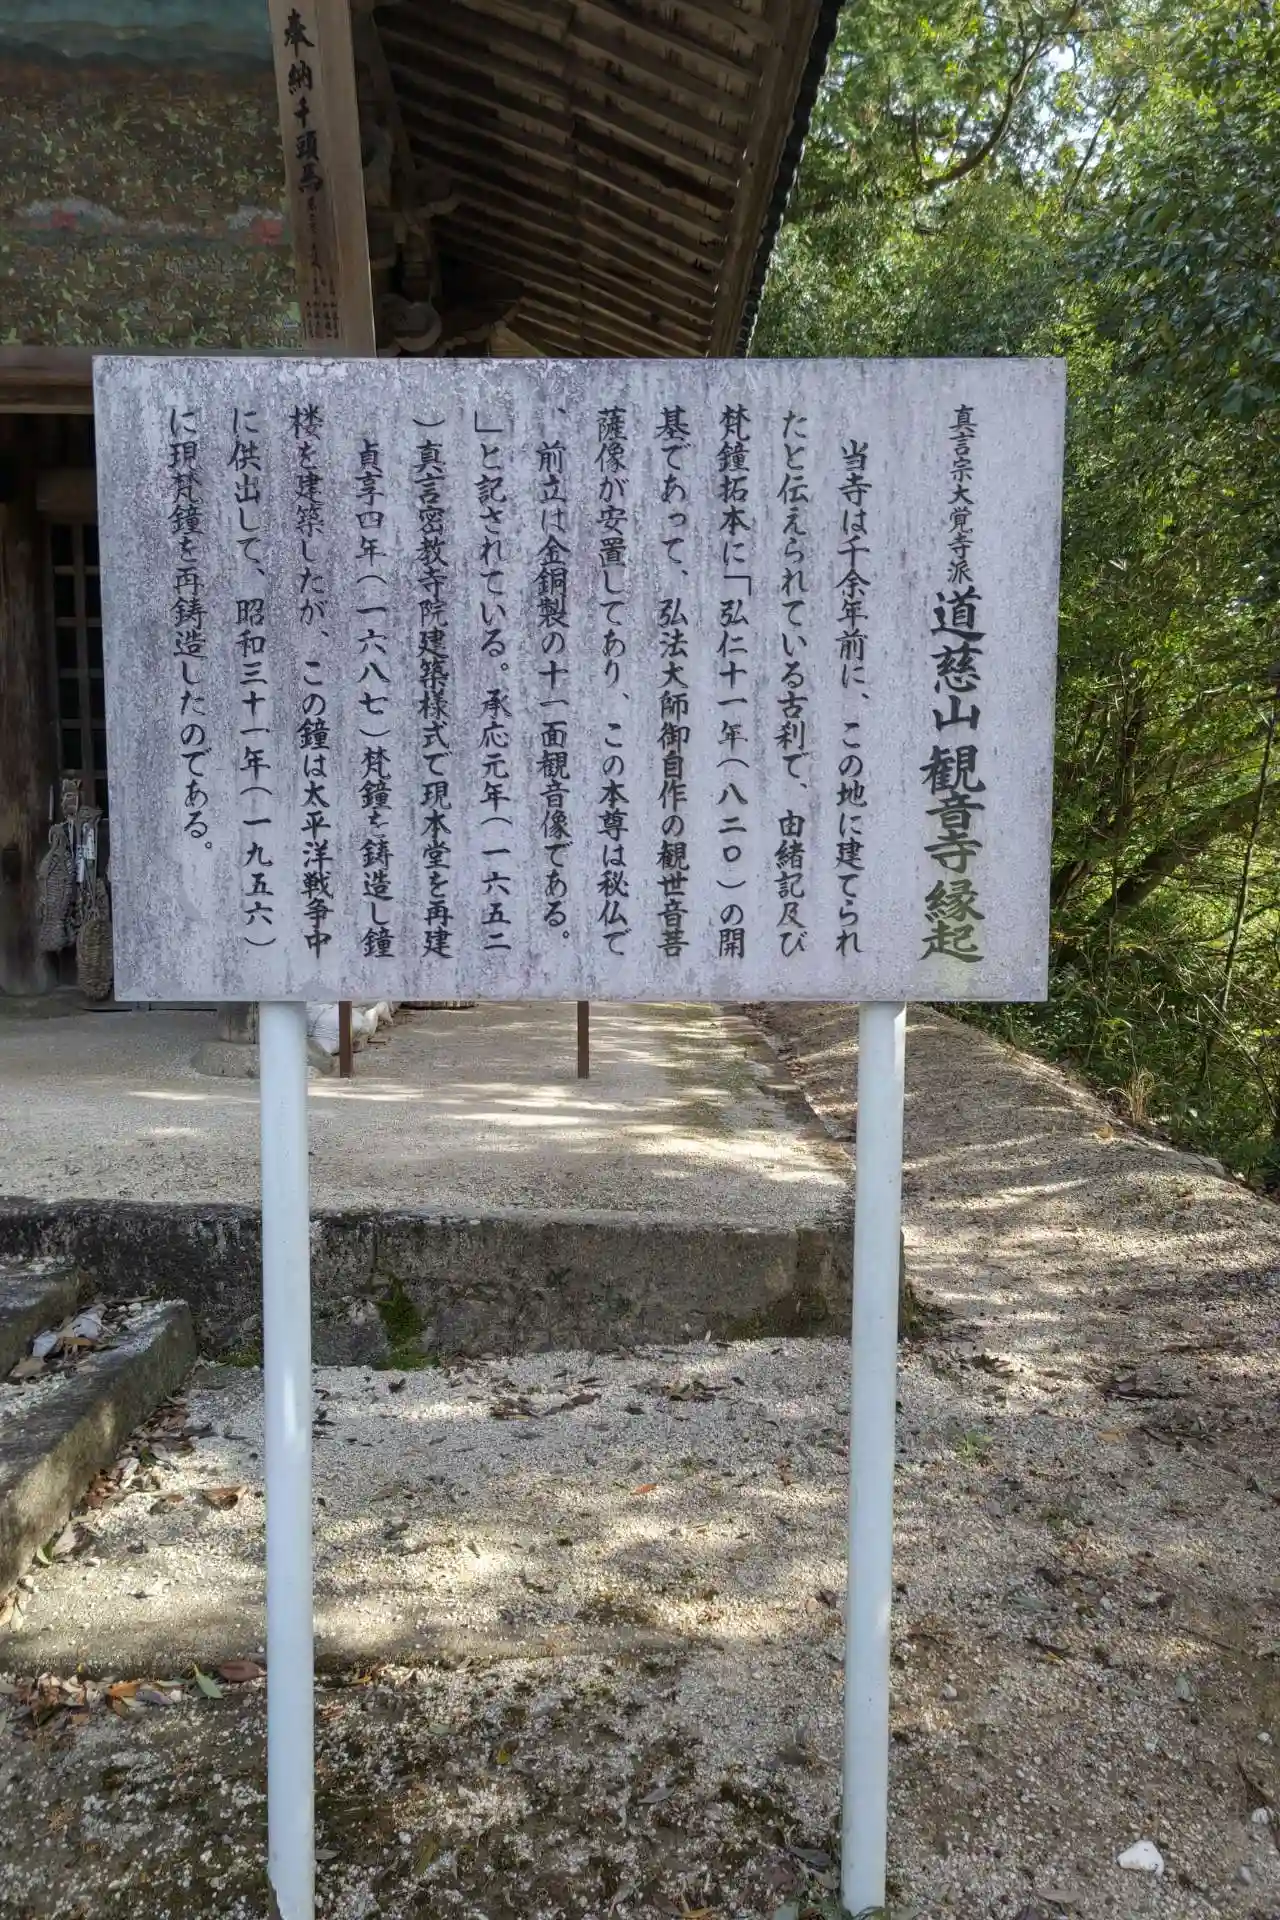 真言宗大覚寺派 道慈山観音寺縁起
当寺は千余年前に、この地に建てられ
たと伝えられている古刹で、由緒記及び
梵鐘拓本に「弘仁十一年(八二〇)の開
基であって、弘法大師御自作の観世音菩
薩像が安置してあり、この本尊は秘仏で
、前立は金銅製の十一面観音像である。
」と記されている。承応元年(一六五二
)真言密教寺院建築様式で現本堂を再建
貞享四年(一六八七)梵鐘を鋳造し鐘
楼を建築したが、この鐘は太平洋戦争中
に供出して、昭和三十一年(一九五六)
に現梵鐘を再鋳造したのである。
奉納千頭馬